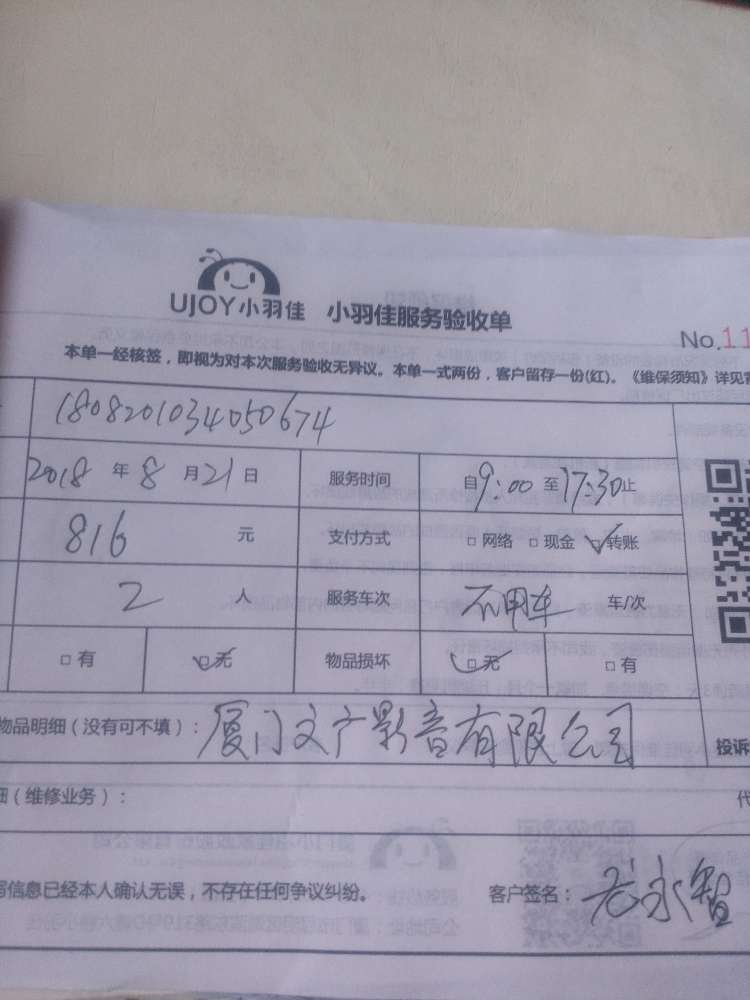 UJOY小羽佳 小羽佳服务验收单
No.11
本单一经核签，即视为对本次服务验收无异议。本单一式两份，客户留存一份(红)。《维保须知》详见背
1808201034050674
2018 年 8 月 21 日 服务时间 自9:00 至17:30止
816 元 支付方式 □ 网络 □ 现金 ☑ 转账
2 人 服务车次 不用车 车/次
□ 有 ☑ 无 物品损坏 ☑ 无 □ 有
物品明细（没有可不填）： 厦门文广影音有限公司
投诉
细（维修业务）：
代
写信息已经本人确认无误，不存在任何争议纠纷。 客户签名： 永智